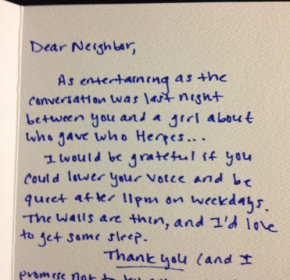 Dear Neighbor,
As entertaining as the
conversation was last night
between you and a girl about
who gave who Herpes...
I would be grateful if you
could lower your voice and be
quiet after 11pm on weekdays.
The walls are thin, and I'd love
to get some sleep.
Thank you (and I
promise not to